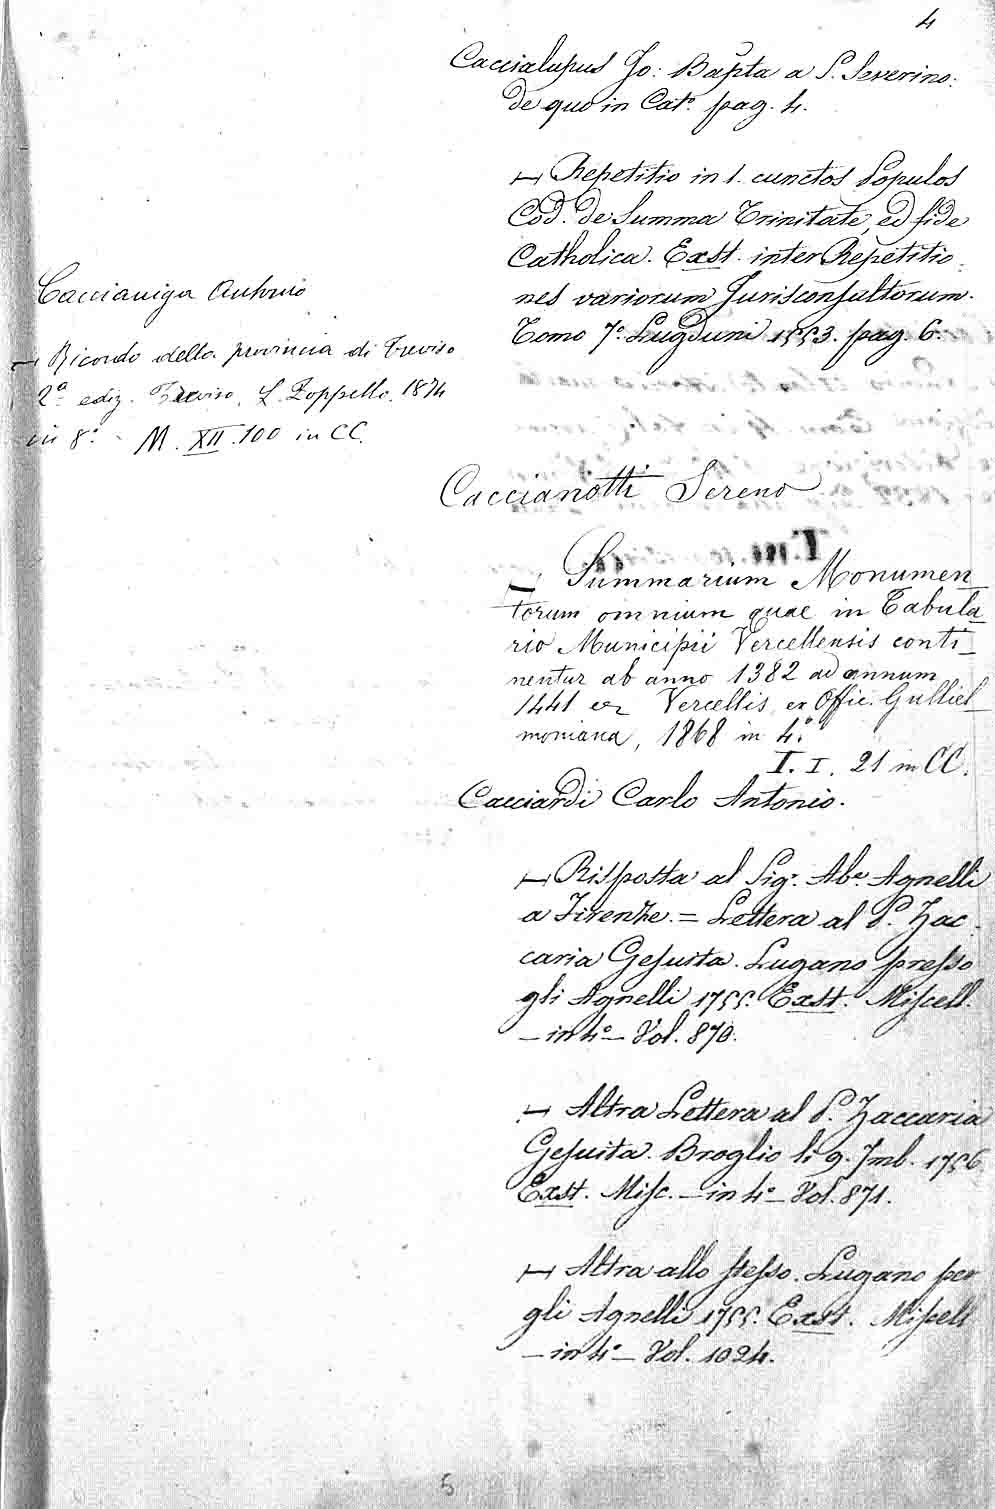 4
Caccialupus Jo: Bap̃ta a S. Severino.
de quo in Cat.º pag. 4.
— Repetitio in l. cunctos Populos
Cod. de Summa Trinitate, ed fide
Catholica. Exst. inter Repetitio
nes variorum Jurisconsultorum.
Tomo 7.º Lugduni 1553. pag. 6.
Caccianiga Antonio
— Ricordo della provincia di Treviso
2.ª ediz. Treviso, L. Zoppello. 1874
in 8.º - M. XII. 100 in CC.
Caccianotti Sereno
— Summarium Monumen
torum omnium quae in Tabula
rio Municipii Vercellensis conti
nentur ab anno 1382 ad annum
1441 Vercellis, ex Offic. Gulliel
moniana, 1868 in 4.º
I. I. 21 in CC.
Cacciardi Carlo Antonio.
— Risposta al Sig.r Ab.e Agnelli
a Firenze. = Lettera al P. Zac
caria Gesuita. Lugano presso
gli Agnelli 1755. Exst. Miscell.
— in 4.º — Vol. 870.
— Altra Lettera al P. Zaccaria
Gesuita. Broglio li 9. Jmb. 1756
Exst. Misc. — in 4.º — Vol. 871.
— Altra allo stesso. Lugano per
gli Agnelli 1755. Exst. Miscell
— in 4.º — Vol. 1024.
5